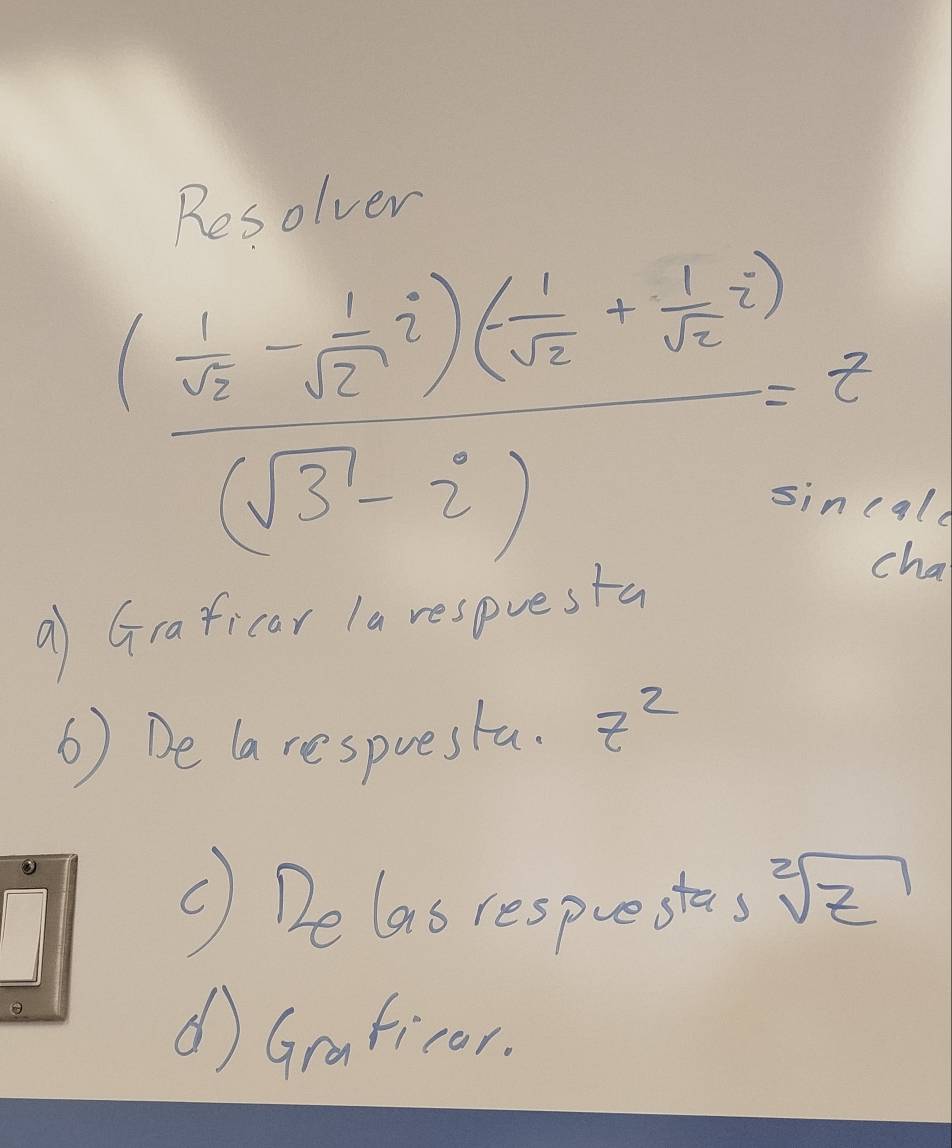 Resolver
(1/√2 - 1/√2 i)(-1/√2 + 1/√2 i)
/ (√3 - i) = z
sin calc
cha
a) Graficar la respuesta
b) De la respuesta. z²
c) De las respuestas ²√z
d) Graficar.